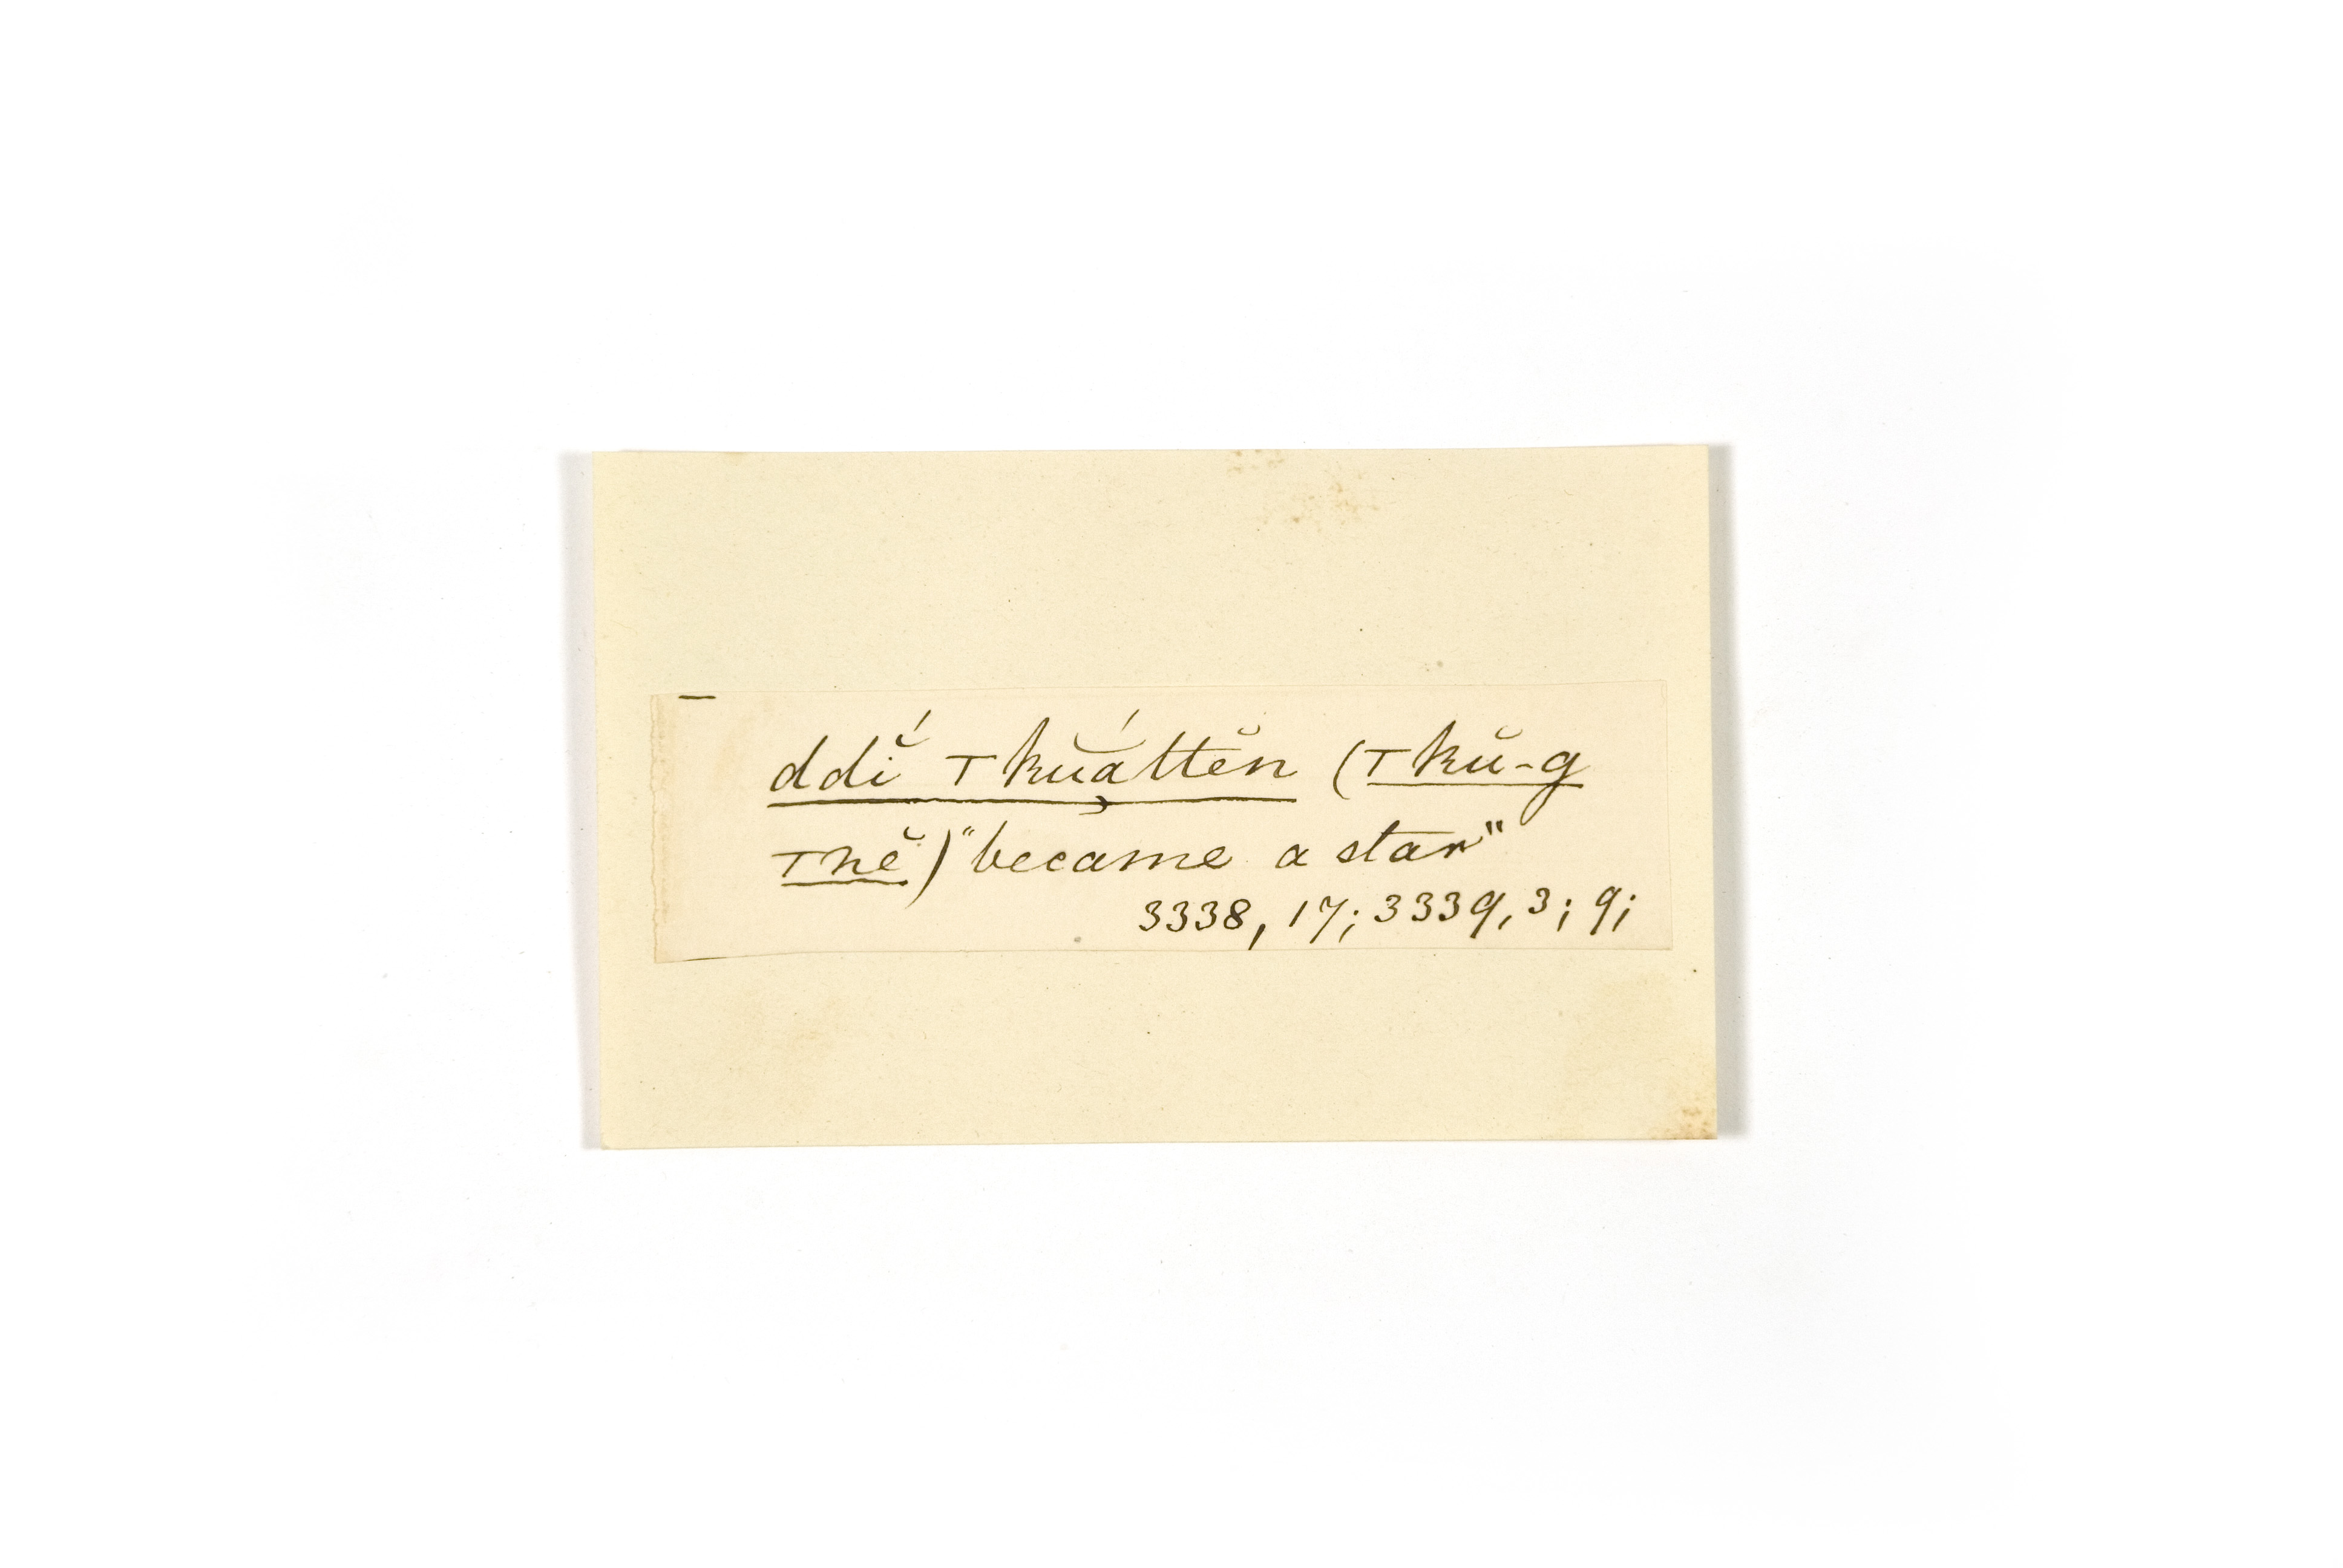 ddĭ́ ⊤kŭą́ttĕn (⊤kŭ-g
⊤nĕ) "became a star"
3338, 17; 3339, 3; 9;